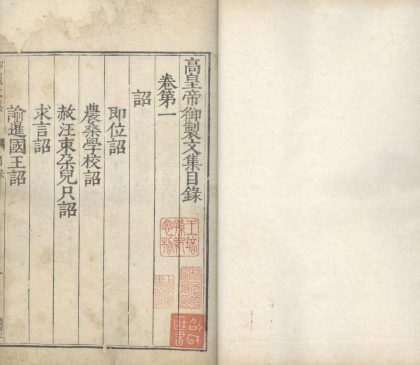 高皇帝御製文集目錄
卷第一
詔
即位詔
農桑學校詔
赦汪束朶兒只詔
求言詔
諭進國王詔